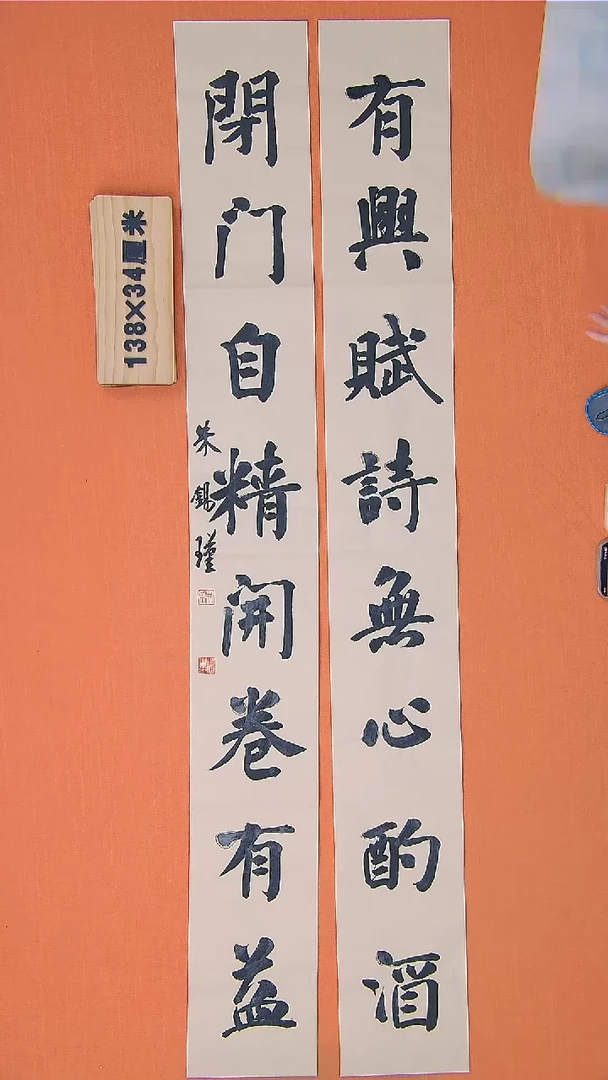 有興賦詩無心酌酒
閉门自精開卷有益
朱錫瑾
138×34厘米